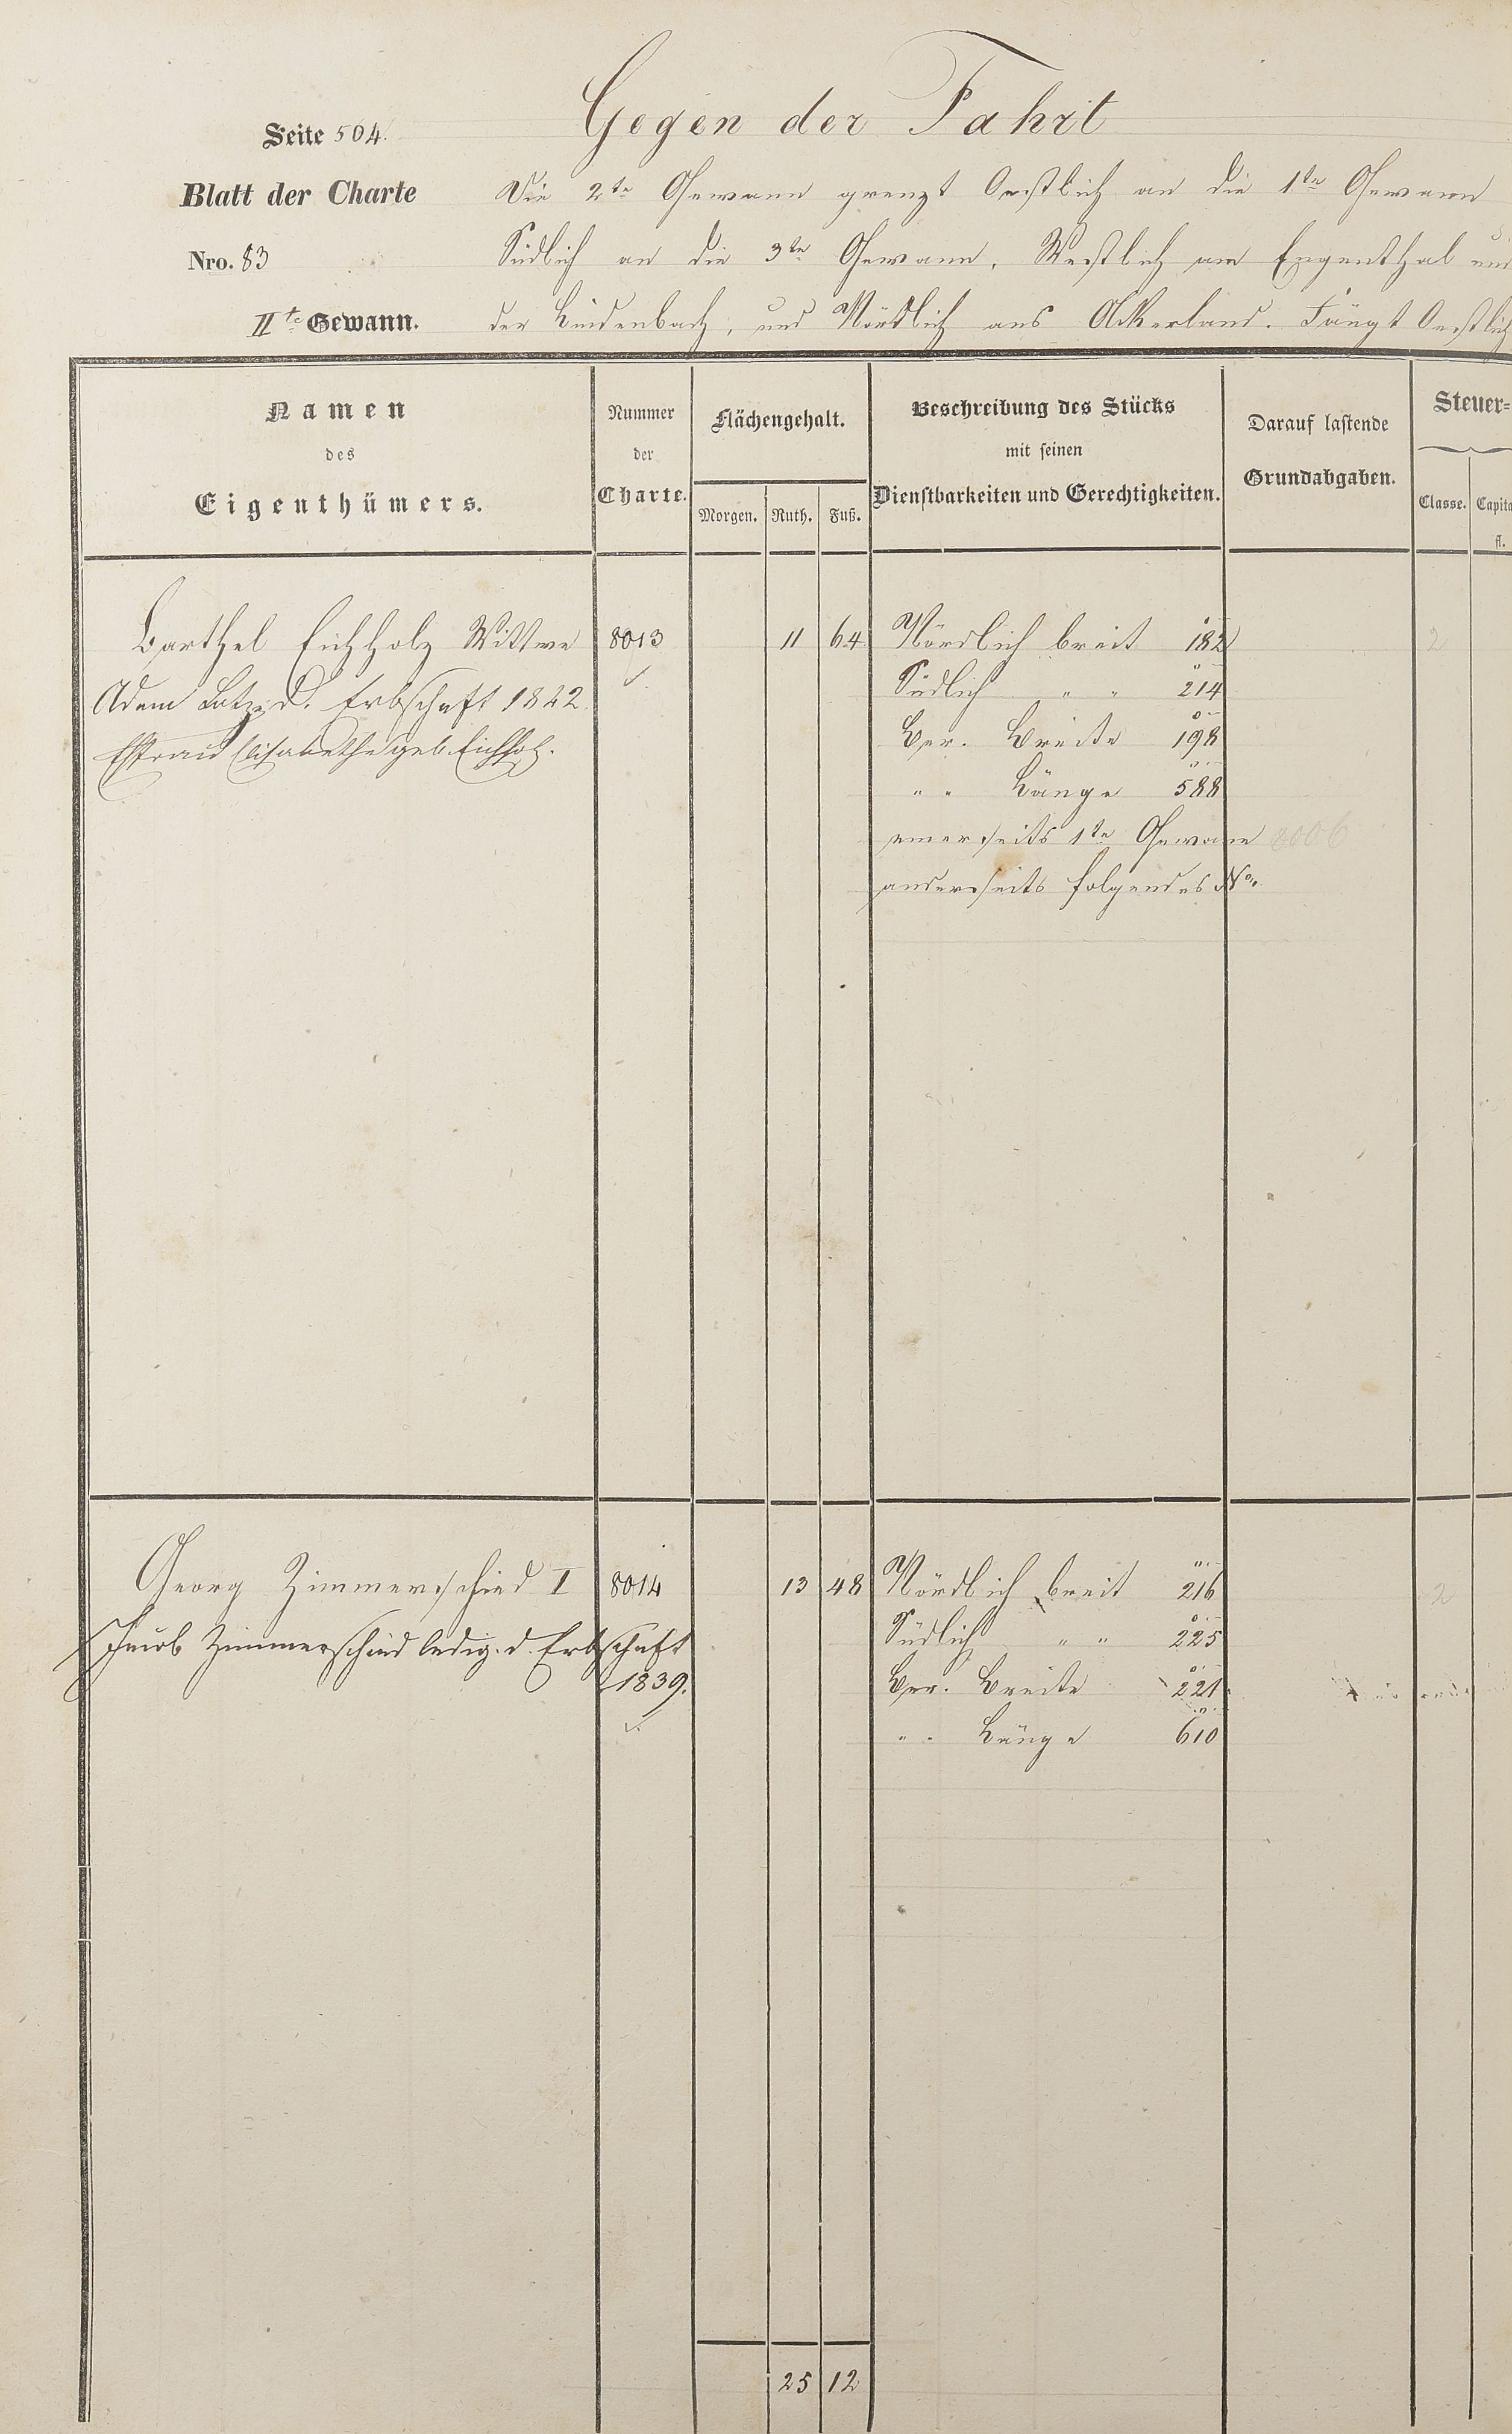 Gegen der Fahrt
Seite 504.
Blatt der Charte
Nro. 83
IIte Gewann.
Die 2te Gewann grenzt Oestlich an die 1te Gewann
Südlich an die 3te Gewann, Westlich am Engenthal und
der Lindenbach, und Nördlich ans Ackerland. Fängt Oestlich
Namen
des
Eigenthümers.
Nummer
der
Charte.
Flächengehalt.
Morgen. Ruth. Fuß.
Beschreibung des Stücks
mit seinen
Dienstbarkeiten und Gerechtigkeiten.
Darauf lastende
Grundabgaben.
Steuer=
Classe. Capita
fl.
Barthel Eichholz Wittwe 8013 11 64 Nördlich breit 182 2
Adam Lotz d. Erbschaft 1842 Südlich " " 214
Ehfrau Elisabethe geb. Eichholz. Ber. Breite 198
" " Länge 588
einerseits 1te Gewann 8006
anderseits folgendes No.
Georg Zimmerschied I 8014 13 48 Nördlich breit 216 2
Jacob Zimmerschied ledig. d. Erbschaft Südlich " " 225
1839. Ber. Breite 221
" " Länge 610
25 12